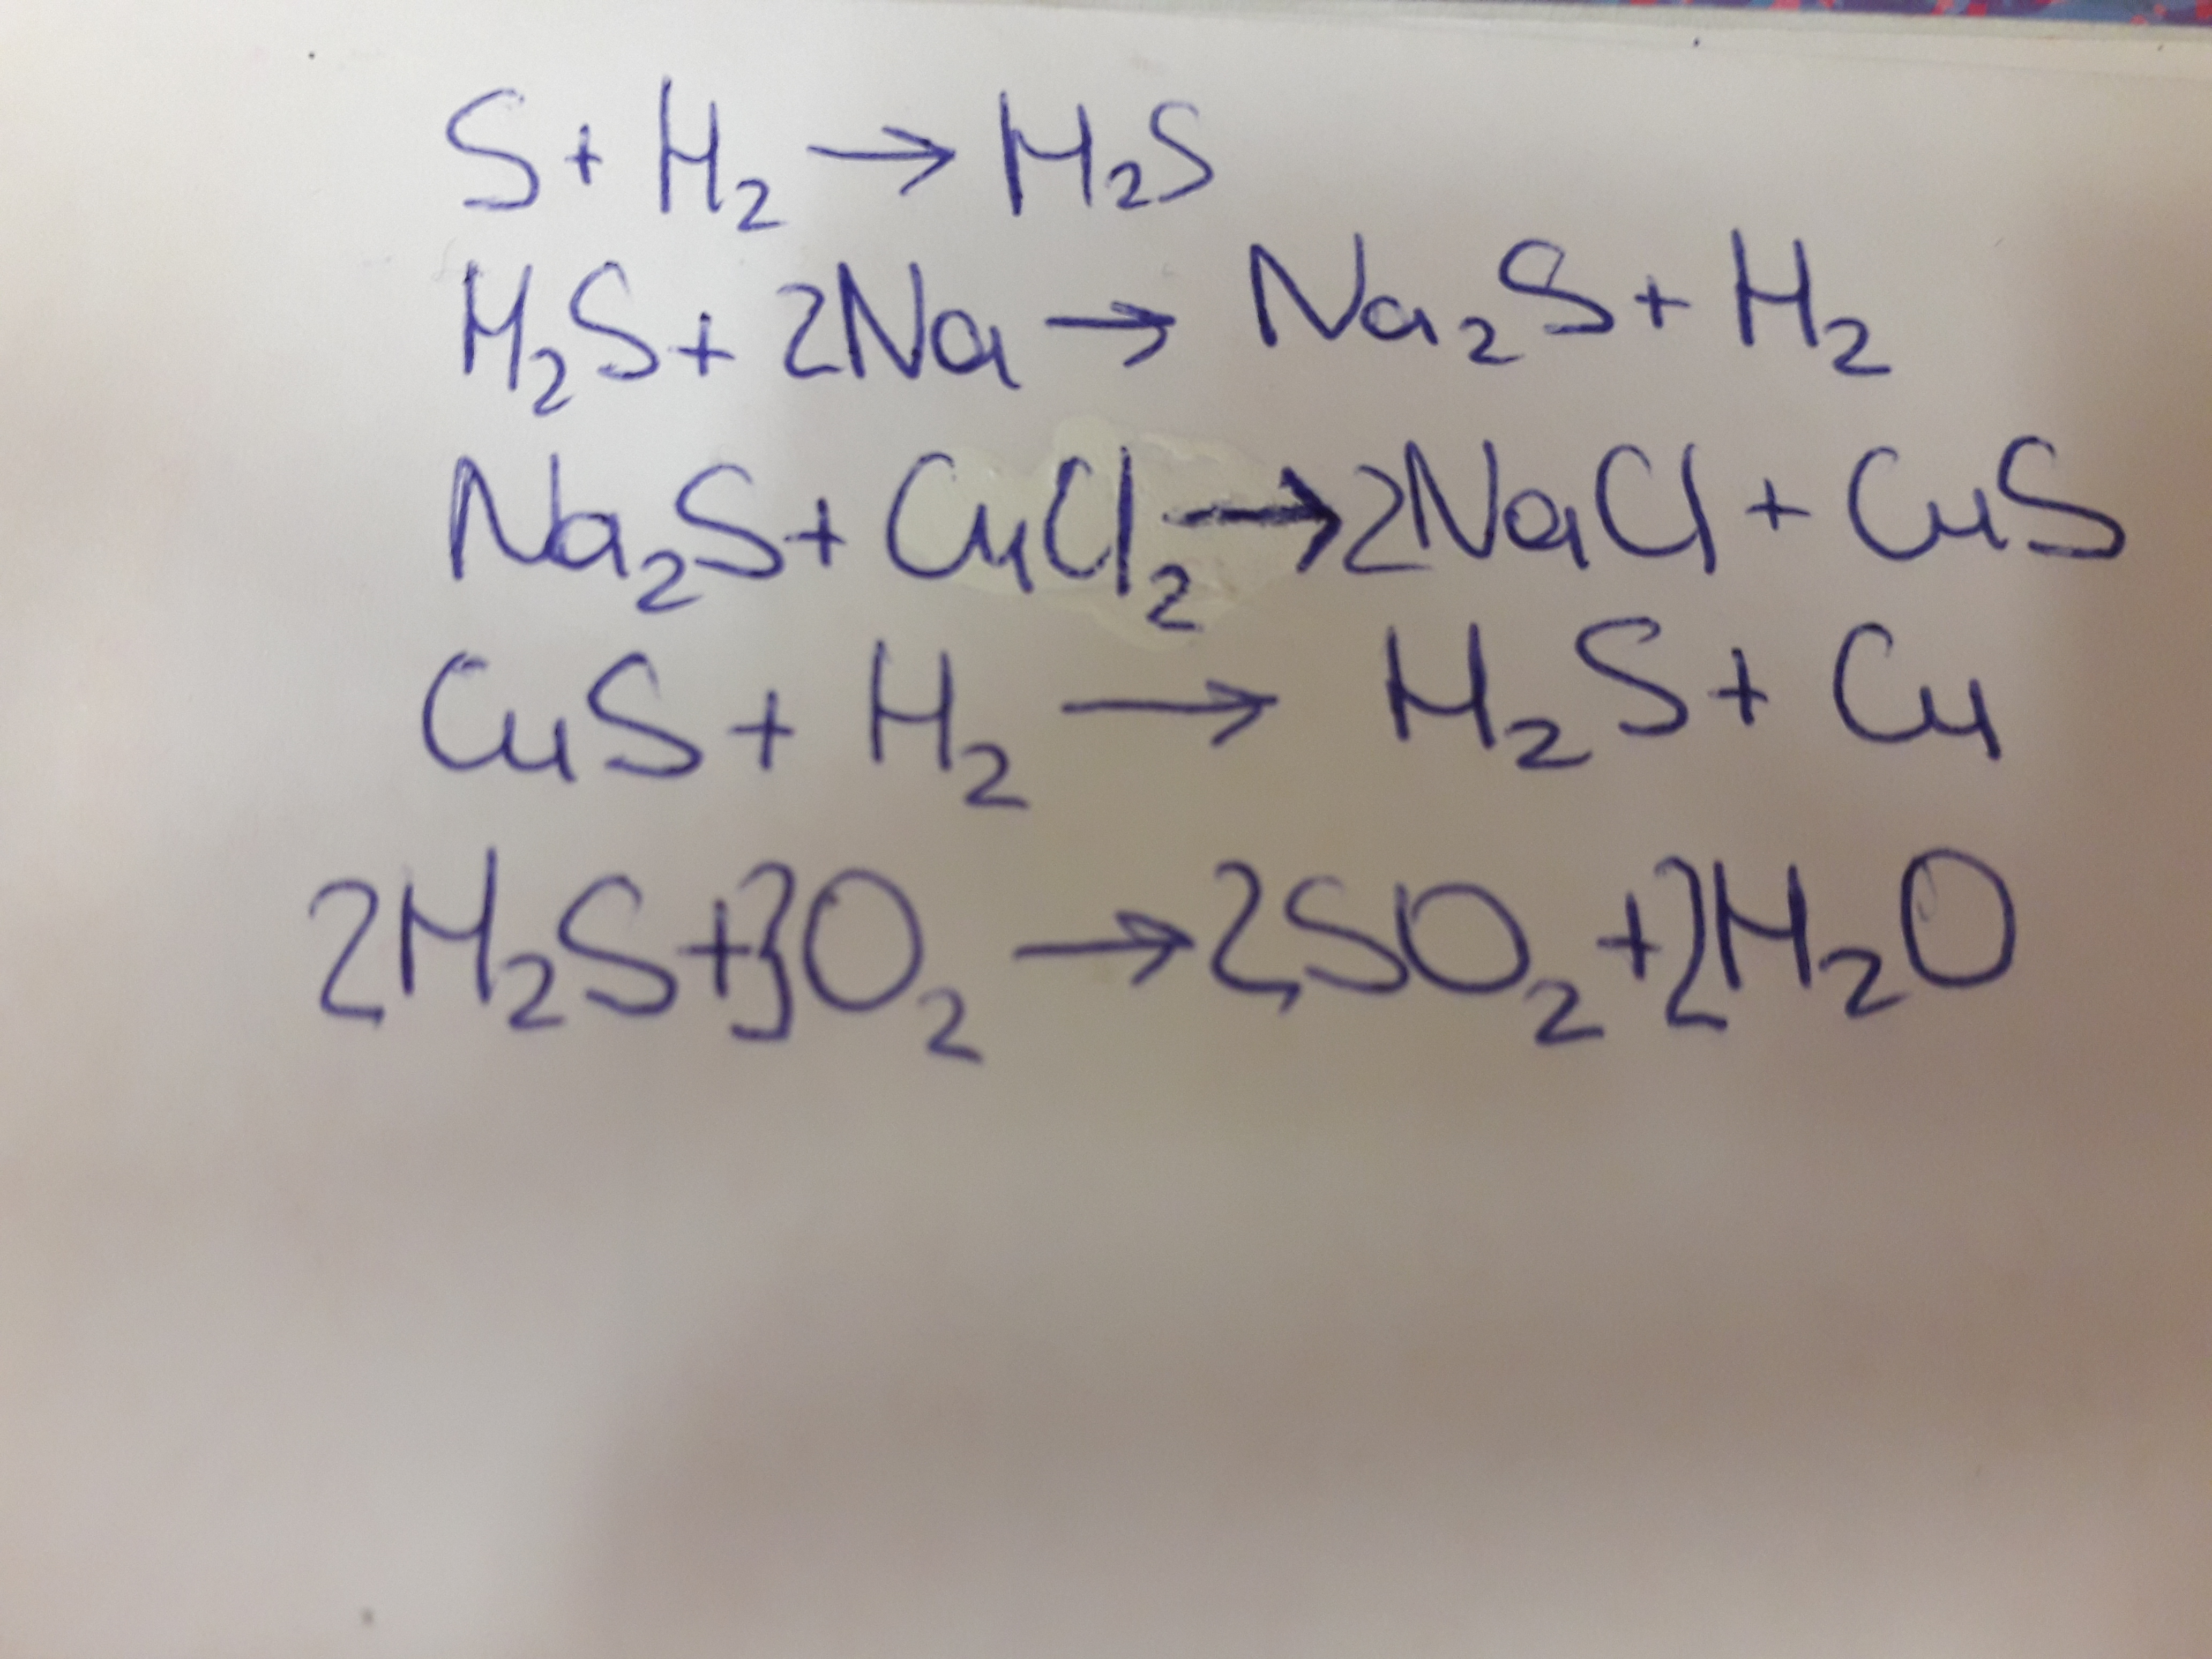 S + H₂ → H₂S
H₂S + 2Na → Na₂S + H₂
Na₂S + CuCl₂ → 2NaCl + CuS
CuS + H₂ → H₂S + Cu
2H₂S + 3O₂ → 2SO₂ + 2H₂O